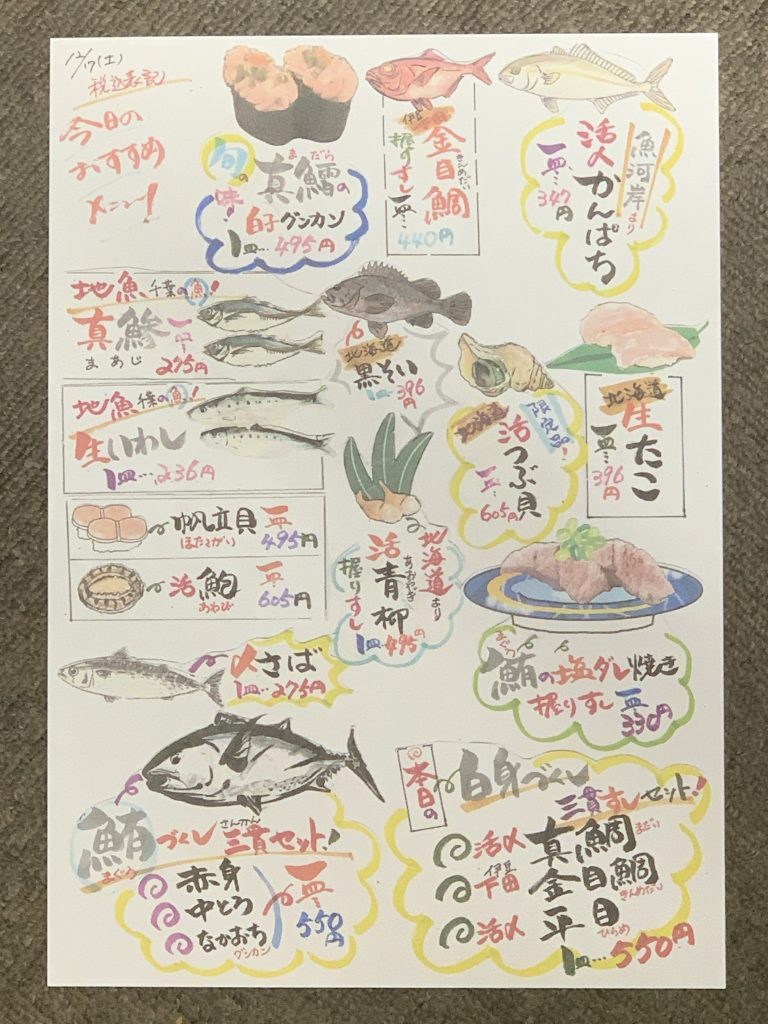 12/17(土)
税込表記
今日の
おすすめ
メニュー!
旬の味!
まだら
真鱈の
白子グンカン
1皿…495円
伊豆
きんめだい
金目鯛
握りすし
一皿…440円
魚河岸より
活〆かんぱち
一皿…347円
地魚 千葉の魚!
真鯵
まあじ
一皿
275円
地魚 千葉の魚!
生いわし
1皿…236円
北海道
黒そい
1皿…396円
限定品!
北海道
活つぶ貝
一皿…605円
北海道
生たこ
一皿…396円
帆立貝
ほたてがい
一皿
495円
活鮑
あわび
一皿
605円
北海道より
活青柳
あおやぎ
握りすし
1皿…495円
〆さば
1皿…275円
まぐろ
鮪の塩ダレ焼き
握りすし 一皿
330円
鮪づくし 三貫セット!
まぐろ
さんかん
赤身
中とろ
なかおち
グンカン
一皿
550円
本日の
白身づくし
三貫すしセット!
活〆 真鯛
まだい
伊豆
下田 金目鯛
きんめだい
活〆 平目
ひらめ
1皿…550円